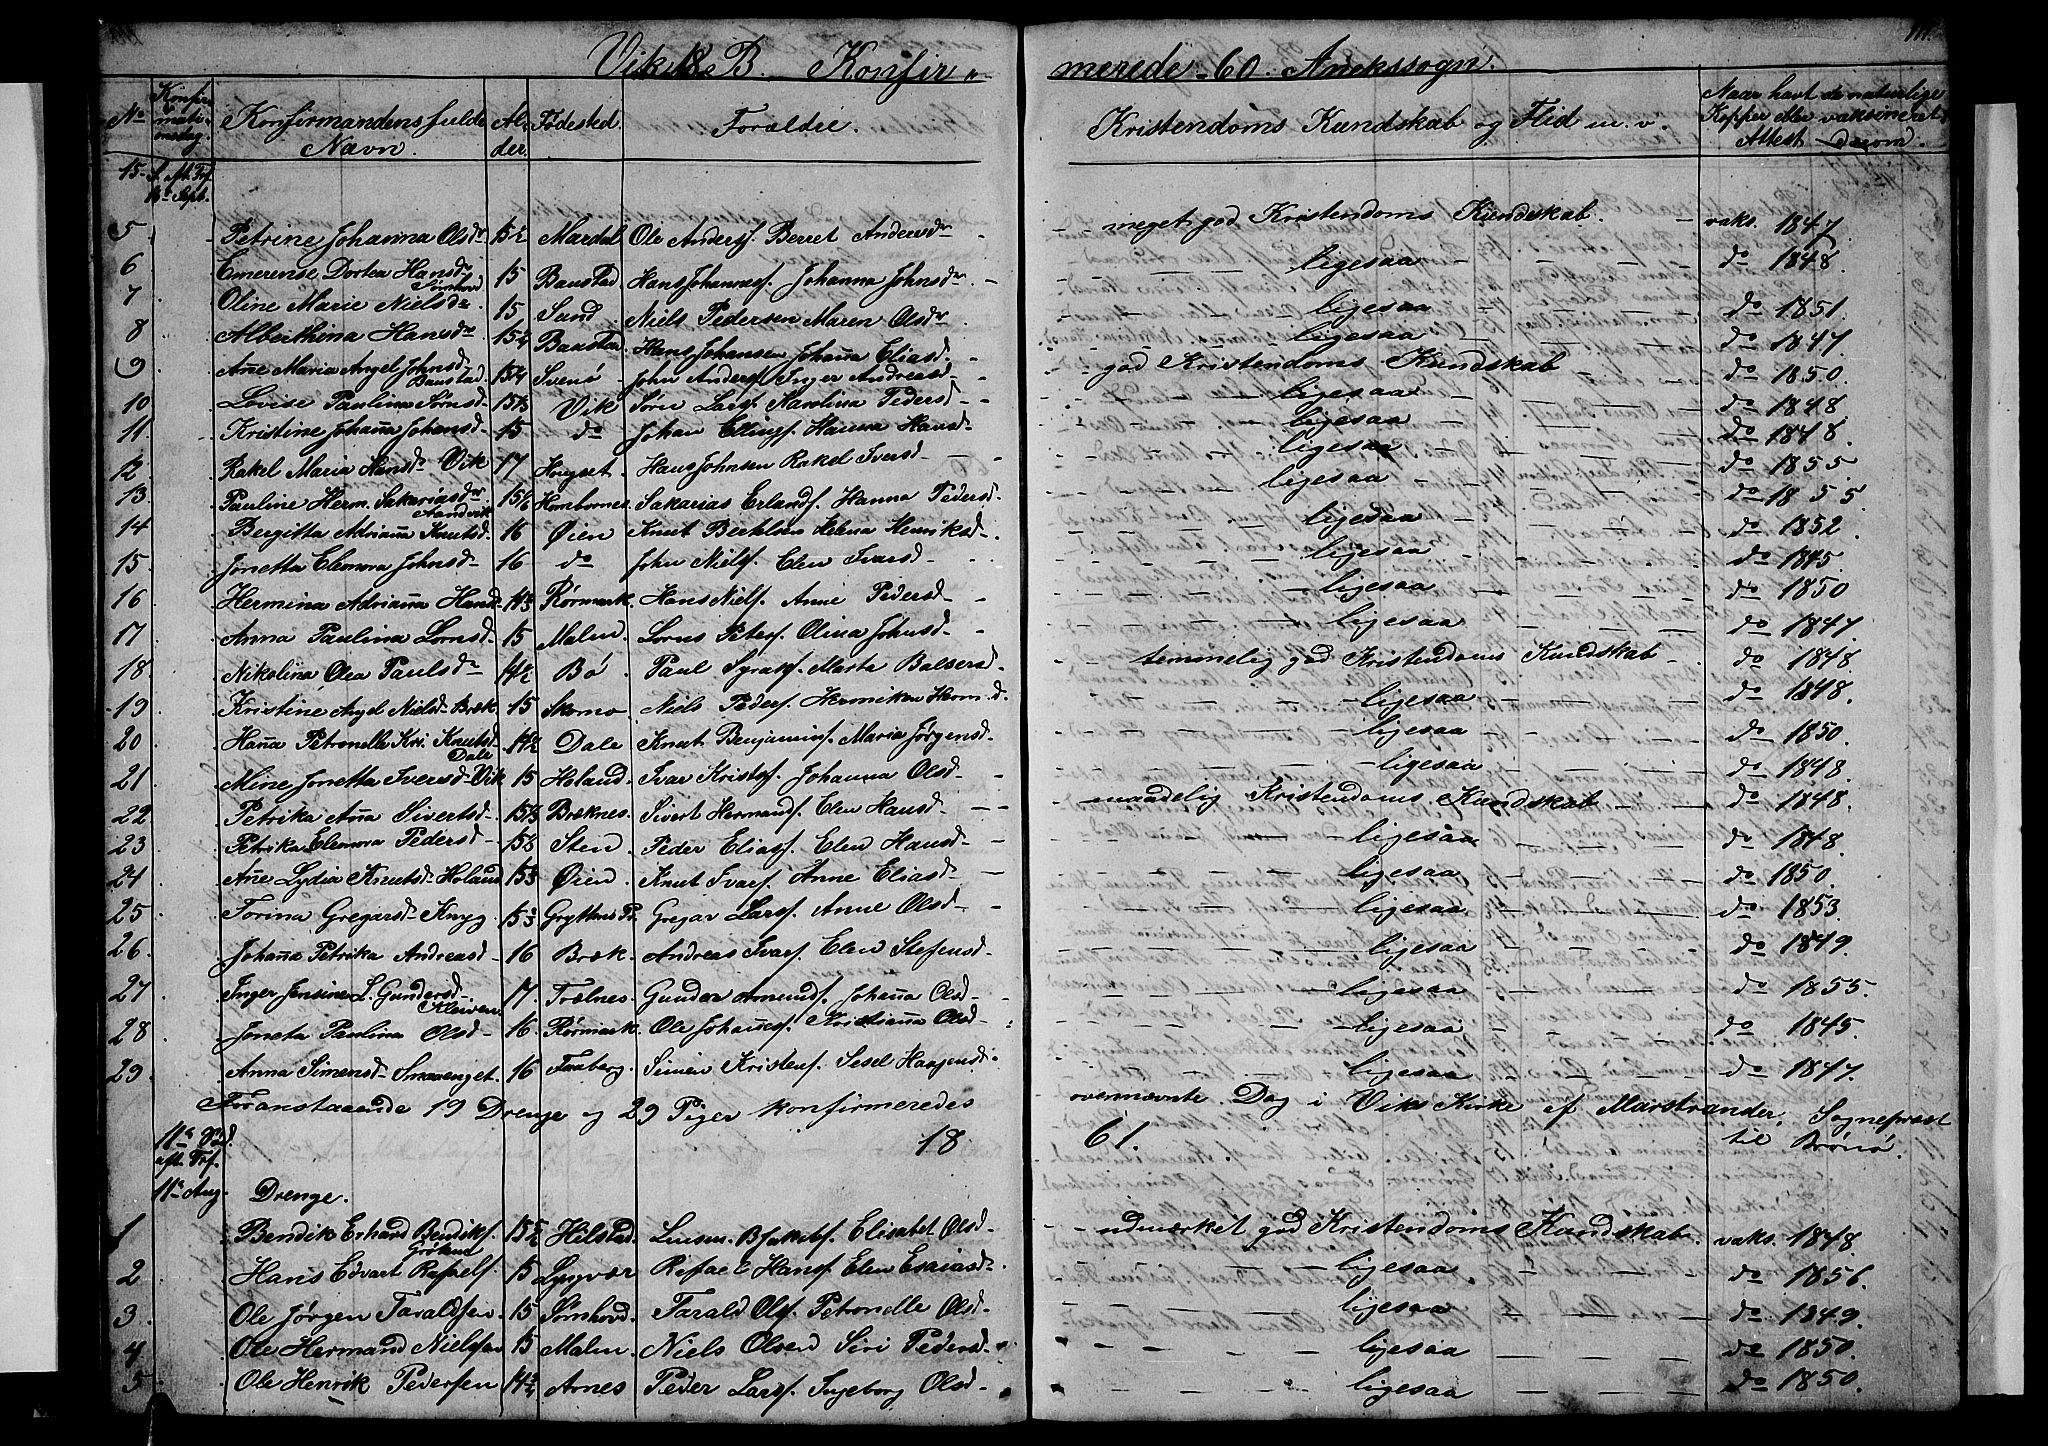 Vik 18 B. Konfir- merede 60. Anekssogn.
No Konfirmationsdag Konfirmandens fulde Navn. Alder. Fødested. Forældre. Kristendoms Kundskab og Flid m. v. Naar havt de naturlige Kopper eller vaksineret Attest derom.
15 S. aft. Tref. 16 Sept.
5 Petrine Johanna Olsdr 15½ Mardal Ole Andersf. Berret Andersdr - meget god Kristendoms Kundskab. vaks. 1847.
6 Emerense Dortea Hansdr 15 Baustad Hans Johannesf. Johanna Johnsdr - ligesaa do 1848.
7 Oline Marie Nielsdr 15 Sund Niels Pedersen Maren Olsdr ligesaa do 1851.
8 Alberthina Hansdr Baustad Hans Johansen Johanna Eliasd. ligesaa do 1847.
9 Anne Maria Angel Johnsd. Baustad 15¼ Svenø John Andersf. Inger Andreasd - god Kristendoms Kundskab do 1850.
10 Lovise Paulina Sørnsd. Vik Sørn Larsf. Karolina Pedersd - ligesaa do 1848.
11. Kristine Johanna Johansd. 15 do Johan Ellingf. Hanna Hansd. ligesaa do 1848.
12 Rakel Maria Hansdr Vik 17 Hongset. Hans Johnsen Rakel Iversd - ligesaa do 1855.
13. Pauline Herm. Sakariasdr Aandvik 15½ Hornbornes. Sakarias Erlandf. Hanna Pedersd. ligesaa do 1855.
14 Bergitta Adrianna Knutsd. 16 Øien Knut Berthelsen Helena Henriksd. ligesaa do 1852.
15. Jonetta Elenora Johnsd - 16 do John Nielsf. Elen Ivarsd - ligesaa do 1845.
16 Hermina Adrianna Hansd. Rørmark. Hans Nielsf. Anne Pedersd - ligesaa do 1850
17. Anna Paulina Lornsd. 15 Malen. Lorns Petersf. Olina Johnsd - ligesaa do 1847.
18. Nikolina Olea Paulsdr 14½ Bø Paul Syrakf. Marta Balsersd. - temmelig god Kristendoms Kundskab - do 1848.
19 Kristine Angel Nielsd. Bræk 15 Skomo Niels Pedersf. Hermiken Herm.d. ligesaa do 1848.
20 Hanna Petronelle Kri. Knutsd. Dale 14½ Dale Knut Benjaminsf. Maria Jørgensd. ligesaa do 1850.
21. Mine Jonetta Iversd. Vik 15 Holand. Ivar Kristof. Johanna Olsd - ligesaa do 1848.
22. Petrika Anna Sivertsd. Bræknes. Sivert Hermandf. Elen Hansd - maadelig Kristendoms Kundskab - do 1848.
23. Petrika Elenora Pedersd. Sten. Peder Eliasf. Elen Hansd - ligesaa do 1848.
24. Anne Lydia Knutsd. Holand Øien. Knut Ivarf. Anne Eliasd - ligesaa do 1850.
25. Torina Gregarsd. Knyg. Gryttnes Pr. Gregar Larsf. Anne Olsd - ligesaa do 1853.
26. Johanne Petrika Andreasd. 16 Bræk. Andreas Ivarf. Elen Stefensd. ligesaa do 1849.
27. Inger Jensine L. Gundersd. Kleiven 17. Trælnes. Gunder Amundf. Johanna Olsd - ligesaa do 1855.
28. Joneta Paulina Olsd 16. Rørmark. Ole Johannesf. Kristianna Olsd - ligesaa do 1845.
29. Anna Simensd. Smaavenget. 16 Faaberg. Simen Kristenf. Sesel Haagensd. ligesaa do 1847.
Foranstaaende 19 Drenge og 29 Piger konfirmeredes ovennævnte Dag i Viks Kirke af Marstrander, Sognepræst til Brønø.
11te Sød. aft. Tref. 11te Aug. 18 61.
Drenge.
1 Bendik Erhard Bendiksf. 15½ Hilstad. Lensm. B Jakobsf. Elisabet Olsd - udmærket god Kristendoms Kundskab. vaks. 1848.
2 Hans Edvart Rafaelf. 15 Lyngvær Rafael Hansf. Elen Esaiasd. ligesaa do 1856.
3. Ole Jørgen Taraldsen 15 Sømhovd. Tarald Olsf. Petronelle Olsd - ligesaa do 1849.
4 Ole Hermand Nielsen 15 Malen. Niels Olsen Siri Pedersd. ligesaa do 1850.
5 Ole Henrik Pedersen 14¾ Aarnes Peder Larsf. Ingeborg Olsd - ligesaa do 1850.